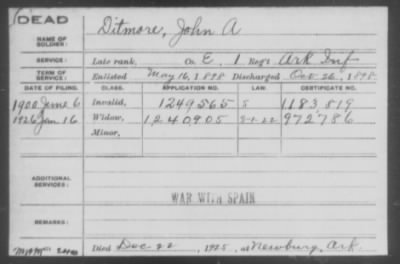 DEAD
NAME OF SOLDIER: Ditmore, John A
SERVICE: Late rank, Co. E, 1 Reg't Ark Inf
TERM OF SERVICE: Enlisted May 16, 1898 Discharged Oct 26, 1898
DATE OF FILING. CLASS. APPLICATION NO. LAW. CERTIFICATE NO.
1900 June 6 Invalid, 1249565 S 1183819
1926 Jan 16 Widow, 1240905 5-1-22 972786
Minor,
ADDITIONAL SERVICES:
WAR WITH SPAIN
REMARKS:
Died Dec 22, 1925, at Newburg, Ark.